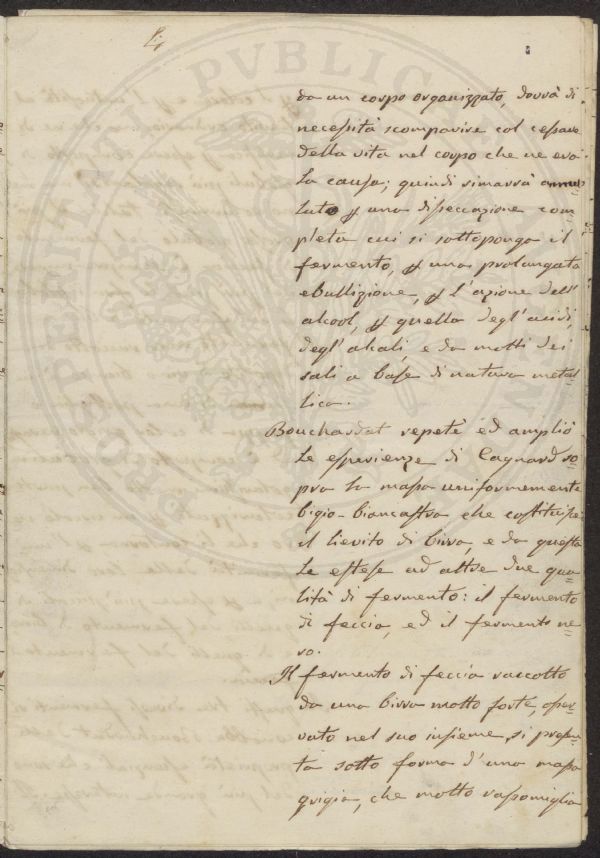 4
da un corpo organizzato, dovrà di
necessità scomparire col cessare
della vita nel corpo che ne era
la causa; quindi rimarrà annul-
lato p una disseccazione com-
pleta cui si sottoponga il
fermento, p una prolungata
ebullizione, p l'azione dell'
alcool, p quella degl'acidi,
degl'alcali, e da molti dei
sali a base di natura metal-
lica.
Bouchardat repetè ed ampliò
le esperienze di Cagnard so-
pra la massa uniformemente
bigio-biancastra che costituisce
il lievito di birra, e da questa
le estese ad altre due qua-
lità di fermento: il fermento
di feccia, ed il fermento ne-
ro.
Il fermento di feccia raccolto
da una birra molto forte, osser-
vato nel suo insieme, si presen-
ta sotto forma d'una massa
grigia, che molto rassomiglia
PVBLICAE